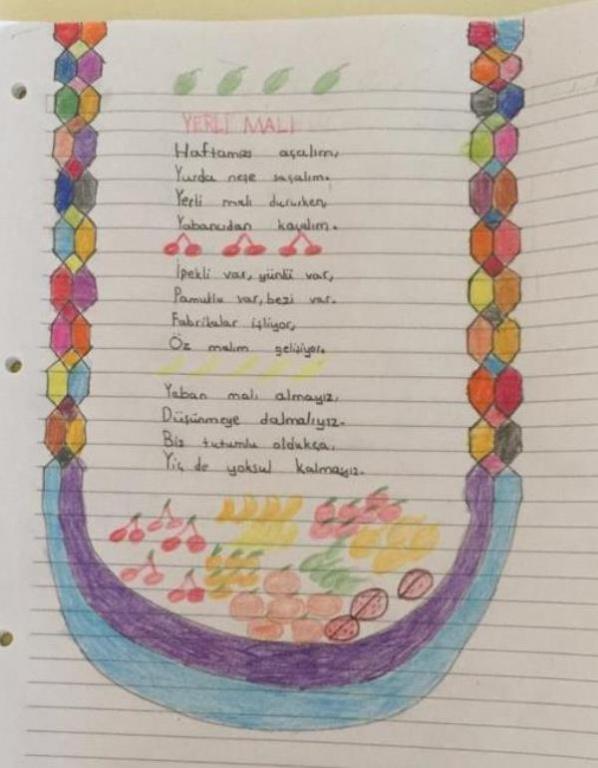 YERLİ MALI
Haftamızı açalım,
Yurda neşe saçalım.
Yerli malı dururken,
Yabancıdan kaçalım.
İpekli var, yünlü var,
Pamuklu var, bezi var.
Fabrikalar işliyor,
Öz malım gelişiyor.
Yaban malı almayız,
Düşünmeye dalmalıyız.
Biz tutumlu oldukça,
Yiç de yoksul kalmayız.